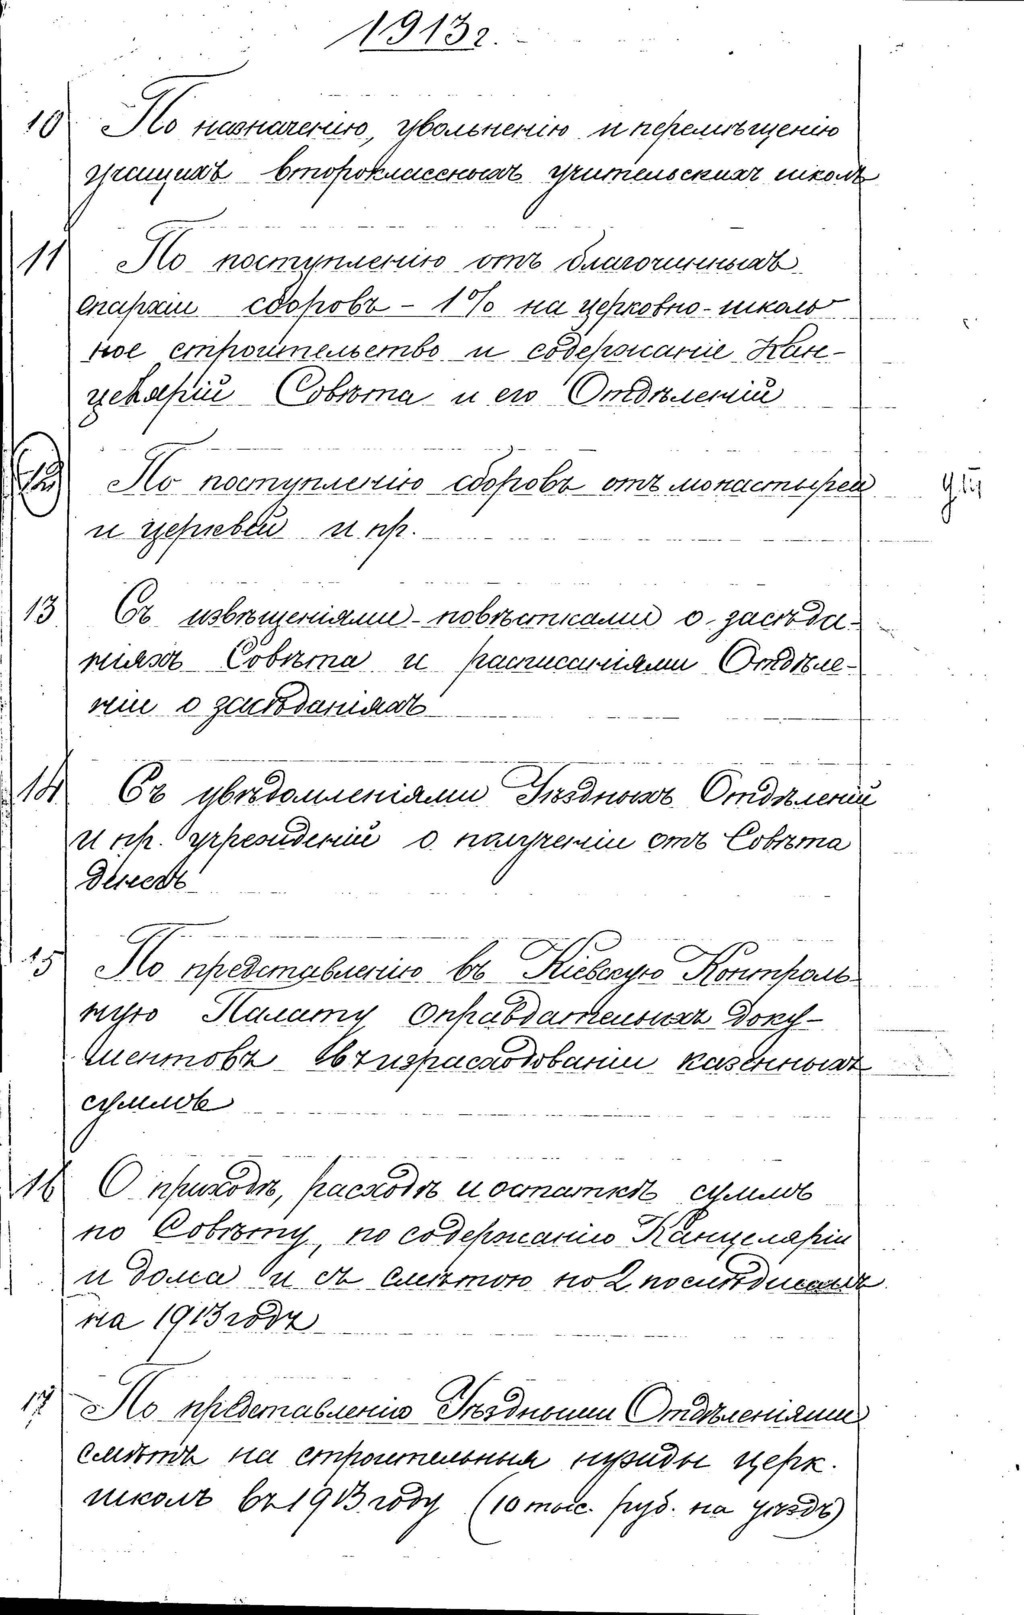 1913 г.
10 По назначенію, увольненію и перемѣщенію
учащихъ второклассныхъ учительскихъ школъ
11 По поступленію отъ благочинныхъ
епархіи сборовъ - 1% на церковно-школь
ное строительство и содержаніе Кан-
целярій Совѣта и его Отдѣленій
12 По поступленію сборовъ отъ монастырей
и церквей и пр.
13 Съ извѣщеніями-повѣстками о засѣда-
ніяхъ Совѣта и расписаніями Отдѣле-
ній о засѣданіяхъ
14 Съ увѣдомленіями Уѣздныхъ Отдѣленій
и пр. учрежденій о полученіи отъ Совѣта
денегъ
15 По представленію въ Кіевскую Контроль
ную Палату оправдательныхъ доку-
ментовъ въ израсходованіи казенныхъ
суммъ
16 О приходѣ, расходѣ и остаткѣ суммъ
по Совѣту, по содержанію Канцеляріи
и дома и съ смѣтою по 2 послѣднимъ
на 1913 годъ
17 По представленію Уѣздными Отдѣленіями
смѣтъ на строительныя нужды церк.
школъ въ 1913 году (10 тыс. руб. на уѣздъ)